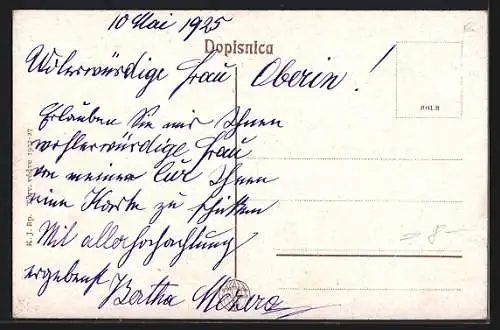 10 Mai 1925
Dopisnica
Wolerwürdige Frau Oberin!
Erlauben Sie mir Ihnen
wohlerwürdige Frau
von meiner Cur Ihnen
eine Karte zu schikken
Mit allerhochachtung
ergebenst Bertha
K. J. Bp.
8-